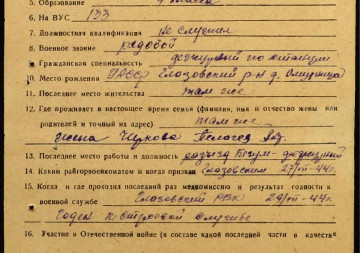 5. Образование 4 класса
6. На ВУС 133
7. Должностная квалификация не служил
8. Военное звание рядовой
9. Гражданская специальность дежурный по
10. Место рождения УАССР Глазовский р-н д.
11. Последнее место жительства там же
12. Где проживает в настоящее время семья (фамилия, имя и отчество жены или
родителей и точный их адрес) там же
жена Чуркова Пелагея
13. Последнее место работы и должность дежурный
14. Каким райгорвоенкоматом и когда призван Глазовским 27/VII-44г.
15. Когда и где проходил последний раз медкомиссию и результат годности к
военной службе Глазовский РВК 29/VII-44г.
Годен к строевой службе
16. Участие в Отечественной войне (в составе какой последней части и качестве